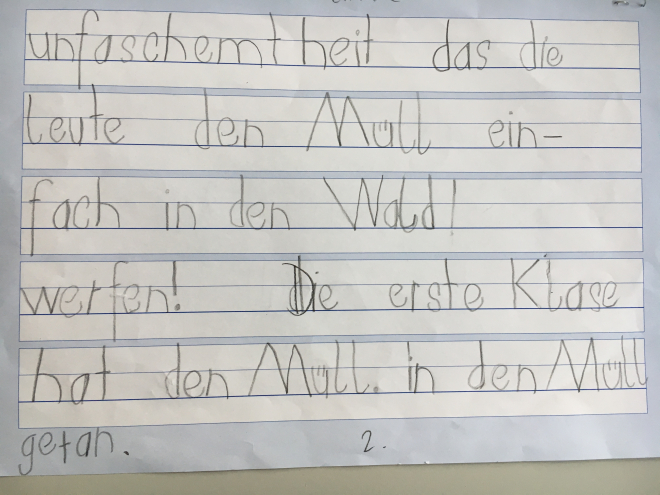 unfaschemtheit das die
leute den Müll ein-
fach in den Wald!
werfen! Die erste Klase
hat den Müll. in den Müll
getan. 2.